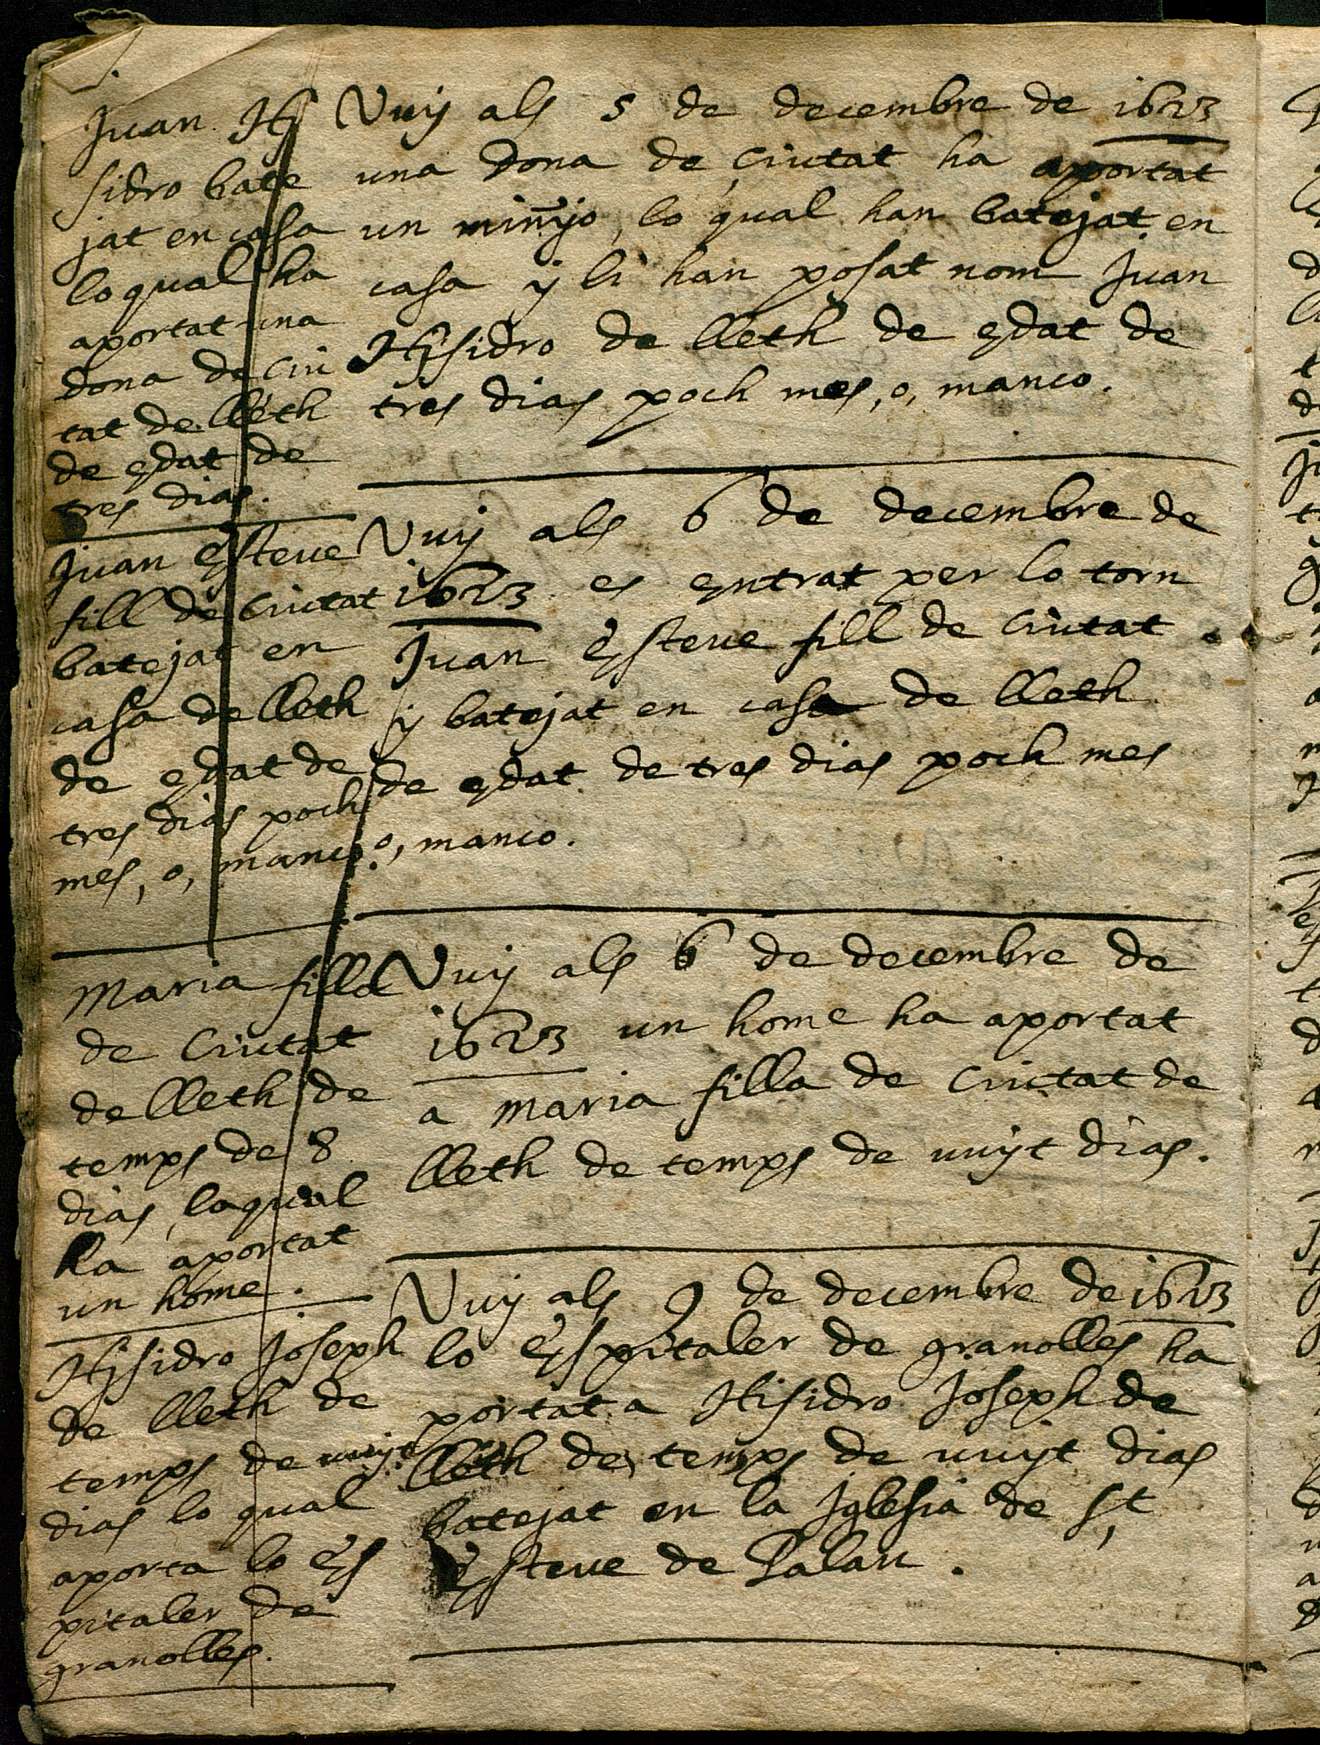 Juan Hi
sidro bate
jat en casa
lo qual ha
aportat una
dona de Ciu
tat de lleth
de edat de
tres dias.
Vuy als 5 de decembre de 1623
una dona de Ciutat ha aportat
un minyo, lo qual han batejat en
casa y li han posat nom Juan
Hisidro de lleth de edat de
tres dias poch mes, o, manco.
Juan Esteve
fill de Ciutat
batejat en
casa de lleth
de edat de
tres dias poch
mes, o, manco.
Vuy als 6 de decembre de
1623 es entrat per lo torn
Juan Esteve fill de Ciutat
y batejat en casa de lleth
de edat de tres dias poch mes
o, manco.
Maria filla
de Ciutat
de lleth de
temps de 8
dias laqual
ha aportat
un home.
Vuy als 6 de decembre de
1623 un home ha aportat
a Maria filla de Ciutat de
lleth de temps de vuyt dias.
Hisidro Joseph
de lleth de
temps de vuyt
dias lo qual
aporta lo Es
pitaler de
granolles.
Vuy als 9 de decembre de 1623
lo Espitaler de granolles ha
portat a Hisidro Joseph de
lleth de temps de vuyt dias
batejat en la Iglesia de St
Esteve de Palau.